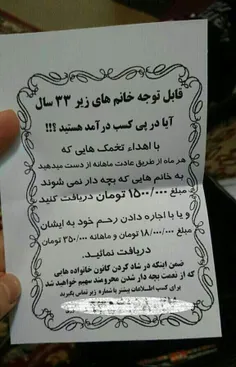 قابل توجه خانم های زیر ۳۳ سال
آیا در پی کسب درآمد هستید ؟!!
با اهداء تخمک هایی که
هر ماه از طریق عادت ماهانه از دست میدهید
به خانم هایی که بچه دار نمی شوند
مبلغ ۱۵۰۰/۰۰۰ تومان دریافت کنید
و یا با اجاره دادن رحم خود به ایشان
مبلغ ۱۸/۰۰۰/۰۰۰ تومان و ماهانه ۳۵۰/۰۰۰ تومان
دریافت نمائید.
ضمن اینکه در شاد کردن کانون خانواده هایی
که از نعمت بچه دار شدن محرومند سهیم خواهید شد
برای کسب اطلاعات بیشتر با شماره زیر تماس بگیرید